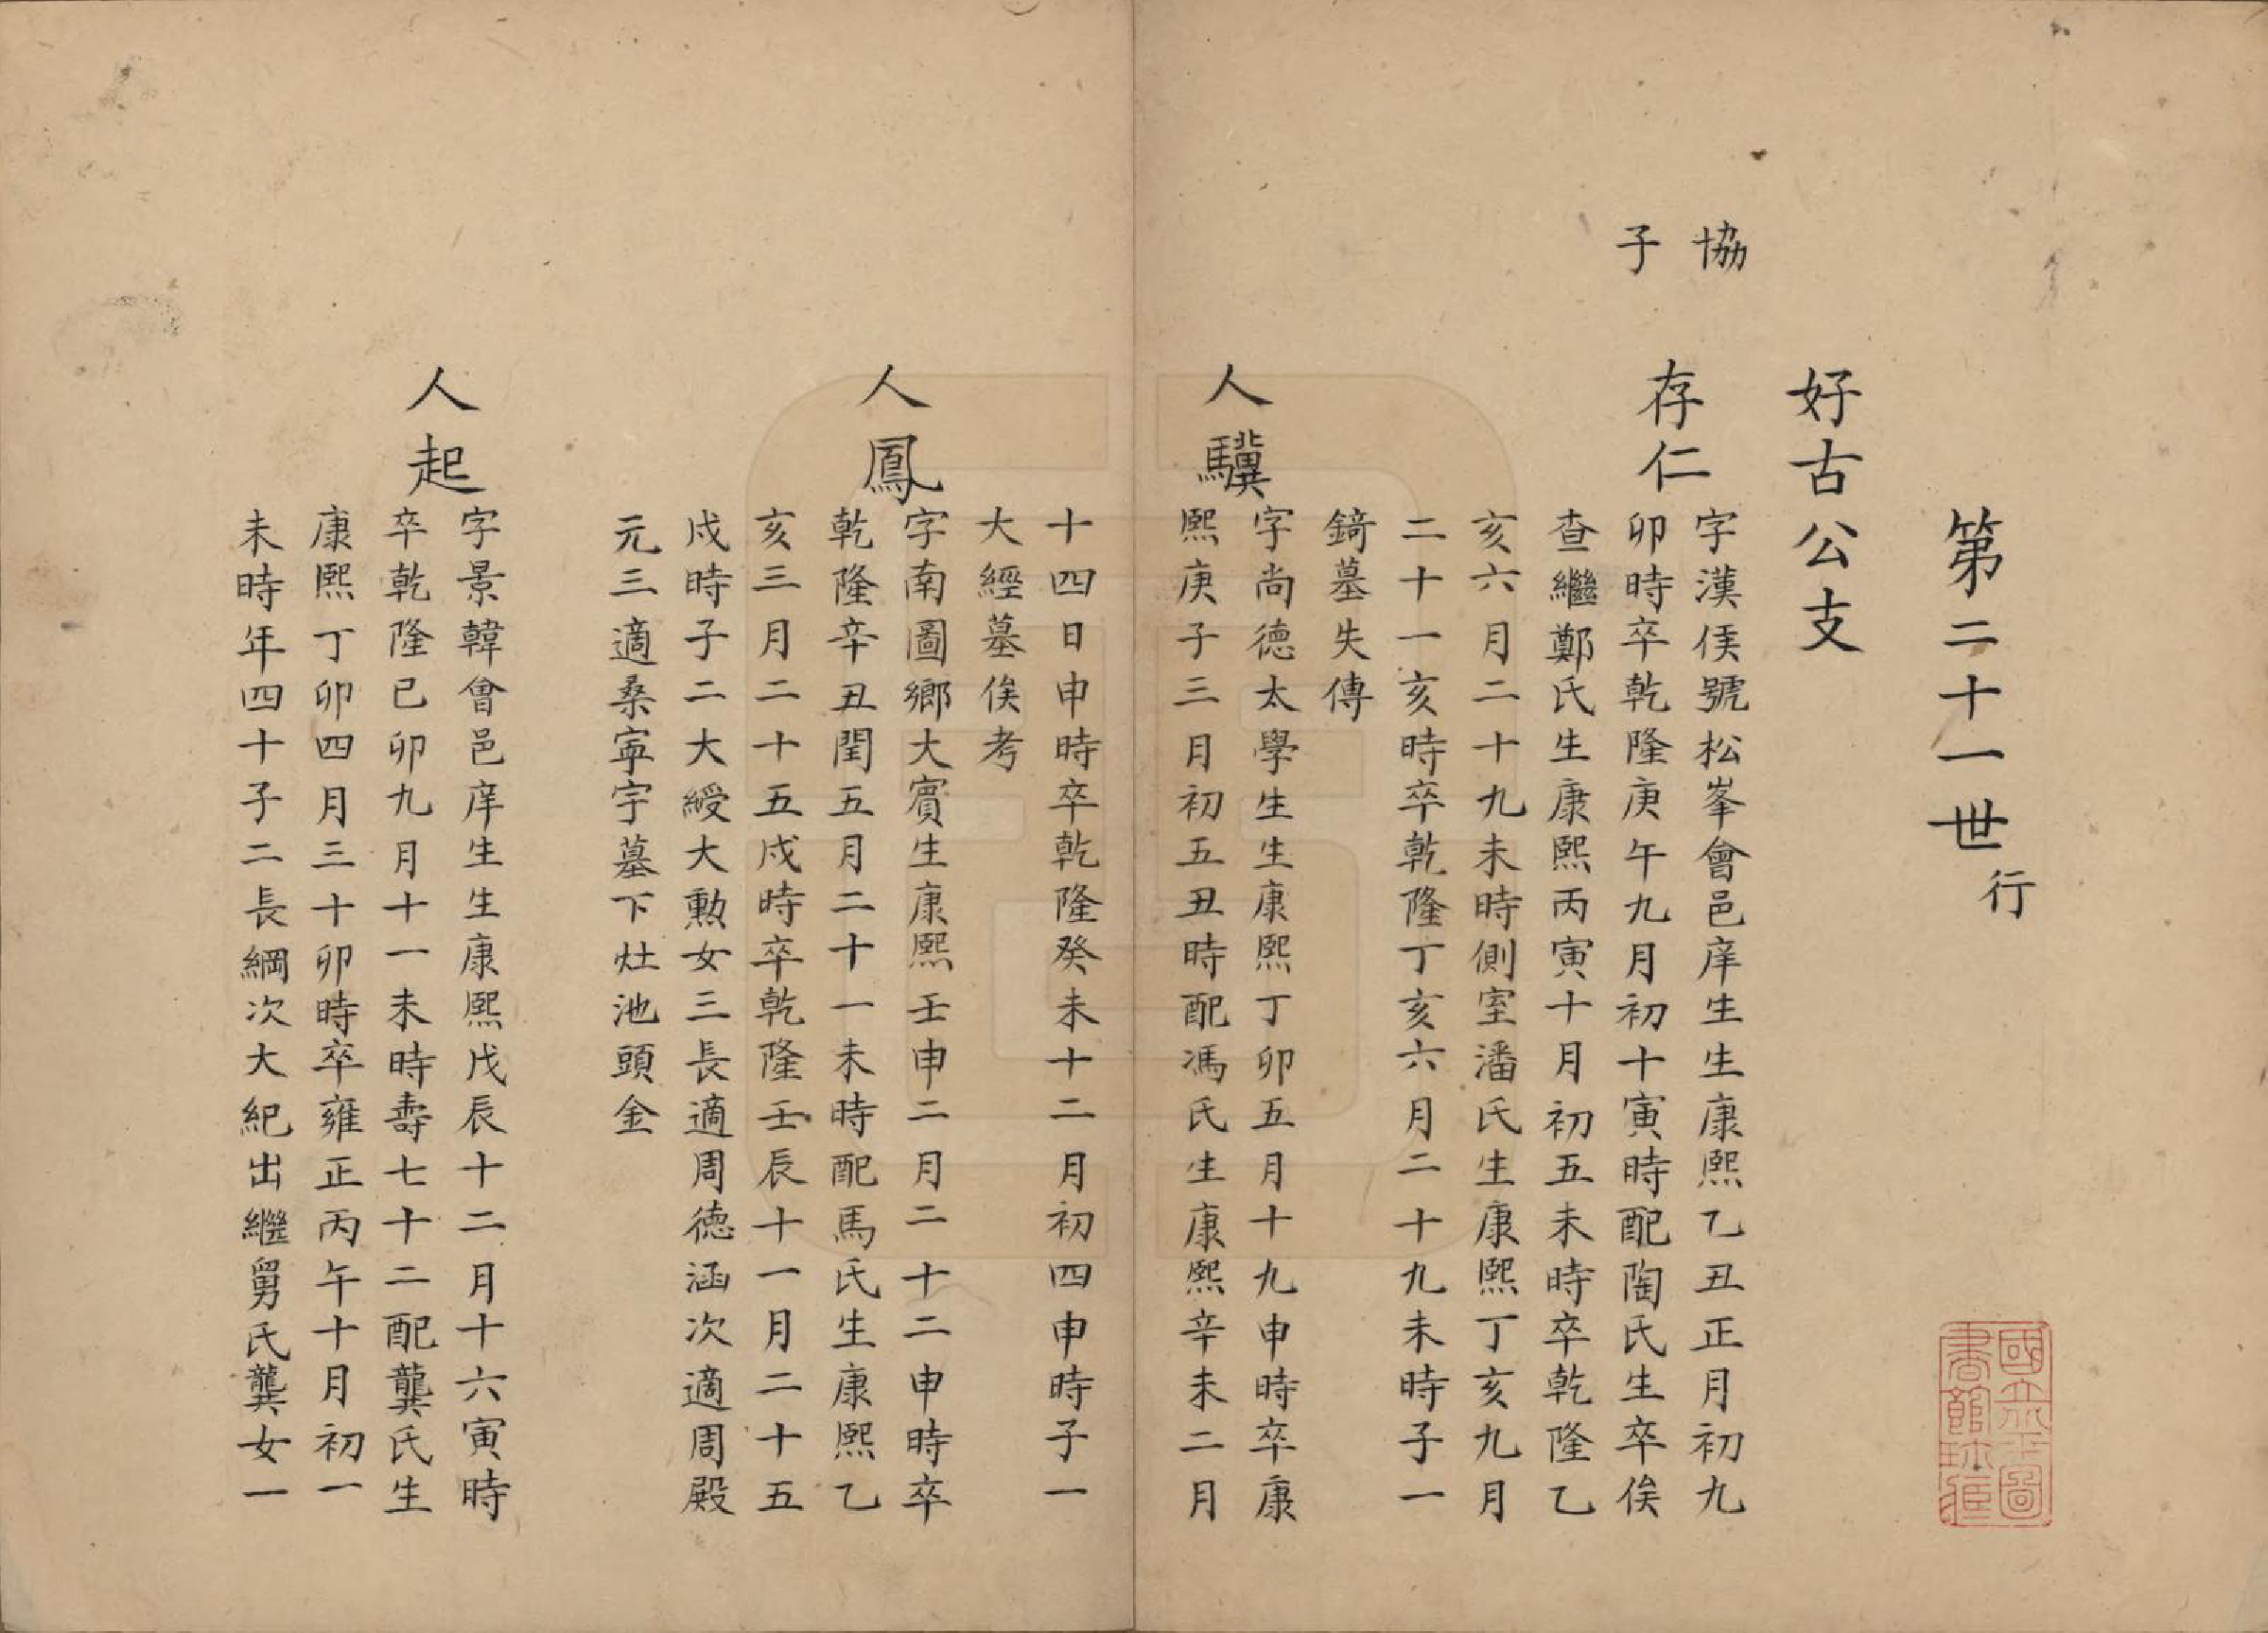 第二十一世行
好古公支
協子
存仁
字漢侯號松峯會邑庠生生康熙乙丑正月初九
卯時卒乾隆庚午九月初十寅時配陶氏生卒俟
查繼鄭氏生康熙丙寅十月初五未時卒乾隆乙
亥六月二十九未時側室潘氏生康熙丁亥九月
二十一亥時卒乾隆丁亥六月二十九未時子一
錡墓失傳
人驥
字尚德太學生生康熙丁卯五月十九申時卒康
熙庚子三月初五丑時配馮氏生康熙辛未二月
十四日申時卒乾隆癸未十二月初四申時子一
大經墓俟考
人鳳
字南圖鄉大賓生康熙壬申二月二十二申時卒
乾隆辛丑閏五月二十一未時配馬氏生康熙乙
亥三月二十五戌時卒乾隆壬辰十一月二十五
戌時子二大綬大勲女三長適周德涵次適周殿
元三適桑寧宇墓下灶池頭金
人起
字景韓會邑庠生生康熙戊辰十二月十六寅時
卒乾隆己卯九月十一未時壽七十二配龔氏生
康熙丁卯四月三十卯時卒雍正丙午十月初一
未時年四十子二長綱次大紀出繼舅氏龔女一
國立北平圖
書館珍藏